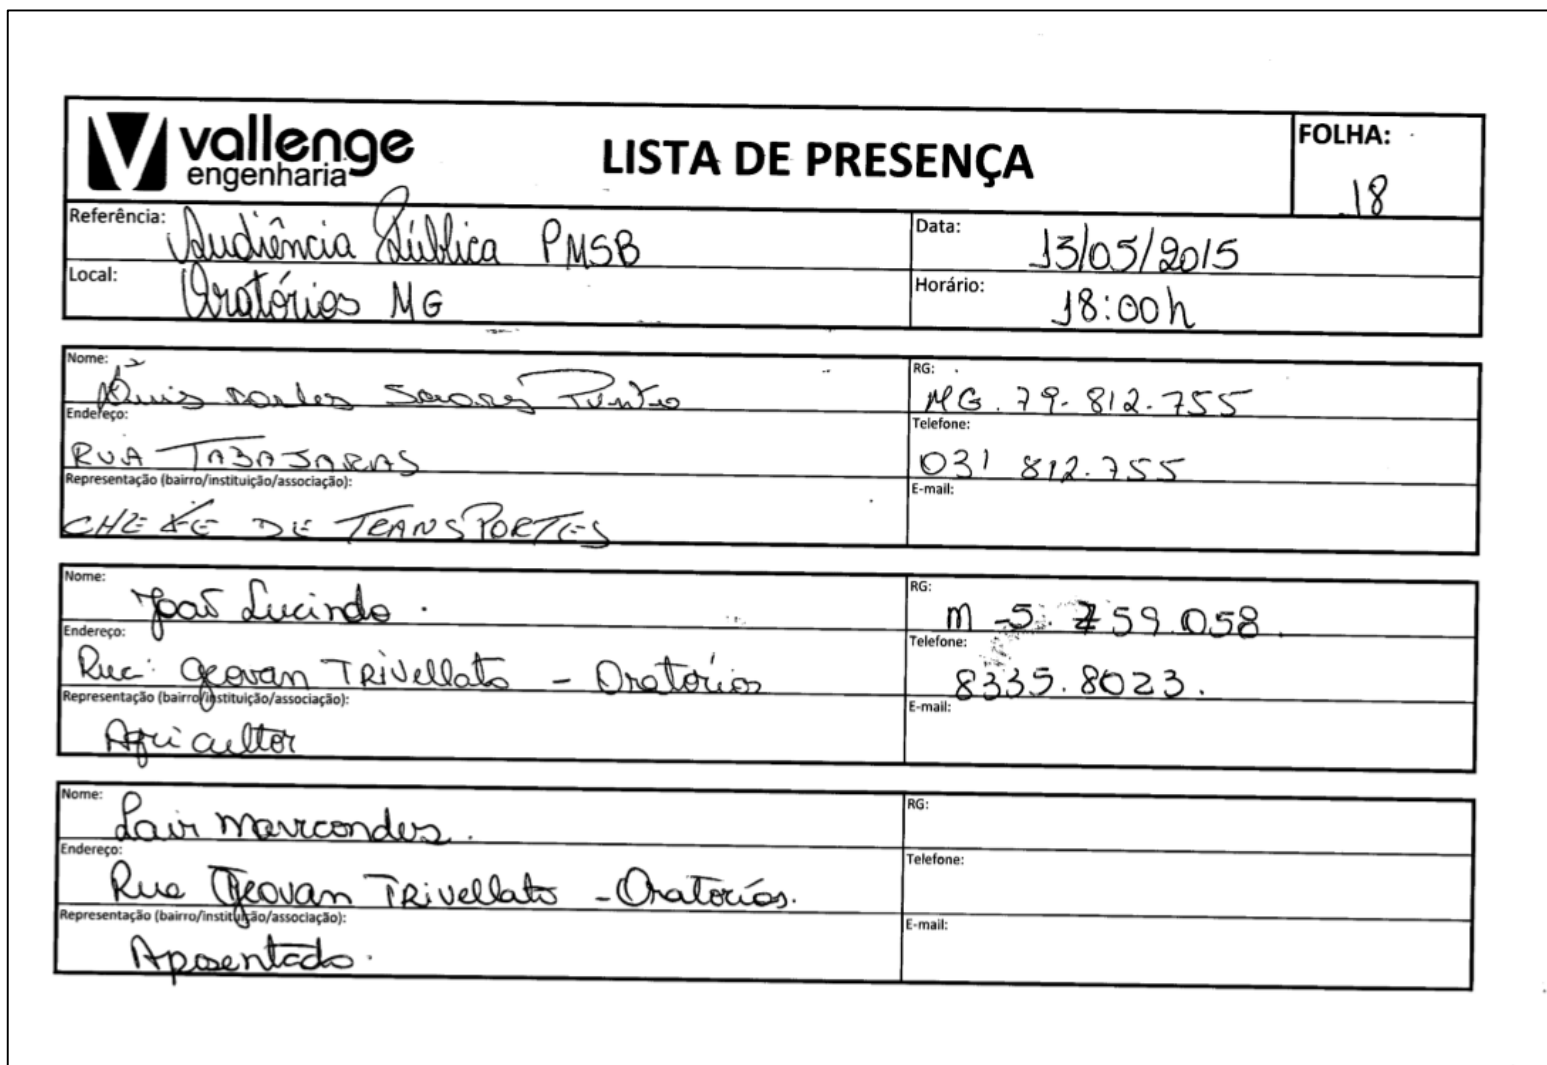 vallenge
engenharia
LISTA DE PRESENÇA
FOLHA:
18
Referência: Audiência Pública PMSB
Data: 13/05/2015
Local: Oratórios MG
Horário: 18:00h
Nome: Luis Soares
RG: MG. 79. 812.755
Endereço: RUA TABAJARAS
Telefone: 031 812.755
Representação (bairro/instituição/associação): CHEFE DE TRANSPORTES
E-mail:
Nome: João Lucindo.
RG: M -5. 759.058.
Endereço: Rua: Geovan TRivellato - Oratórios
Telefone: 8335.8023.
Representação (bairro/instituição/associação): Agricultor
E-mail:
Nome: Lair Marcondes.
RG:
Endereço: Rua Geovan TRivellato - Oratórios.
Telefone:
Representação (bairro/instituição/associação): Aposentado.
E-mail: